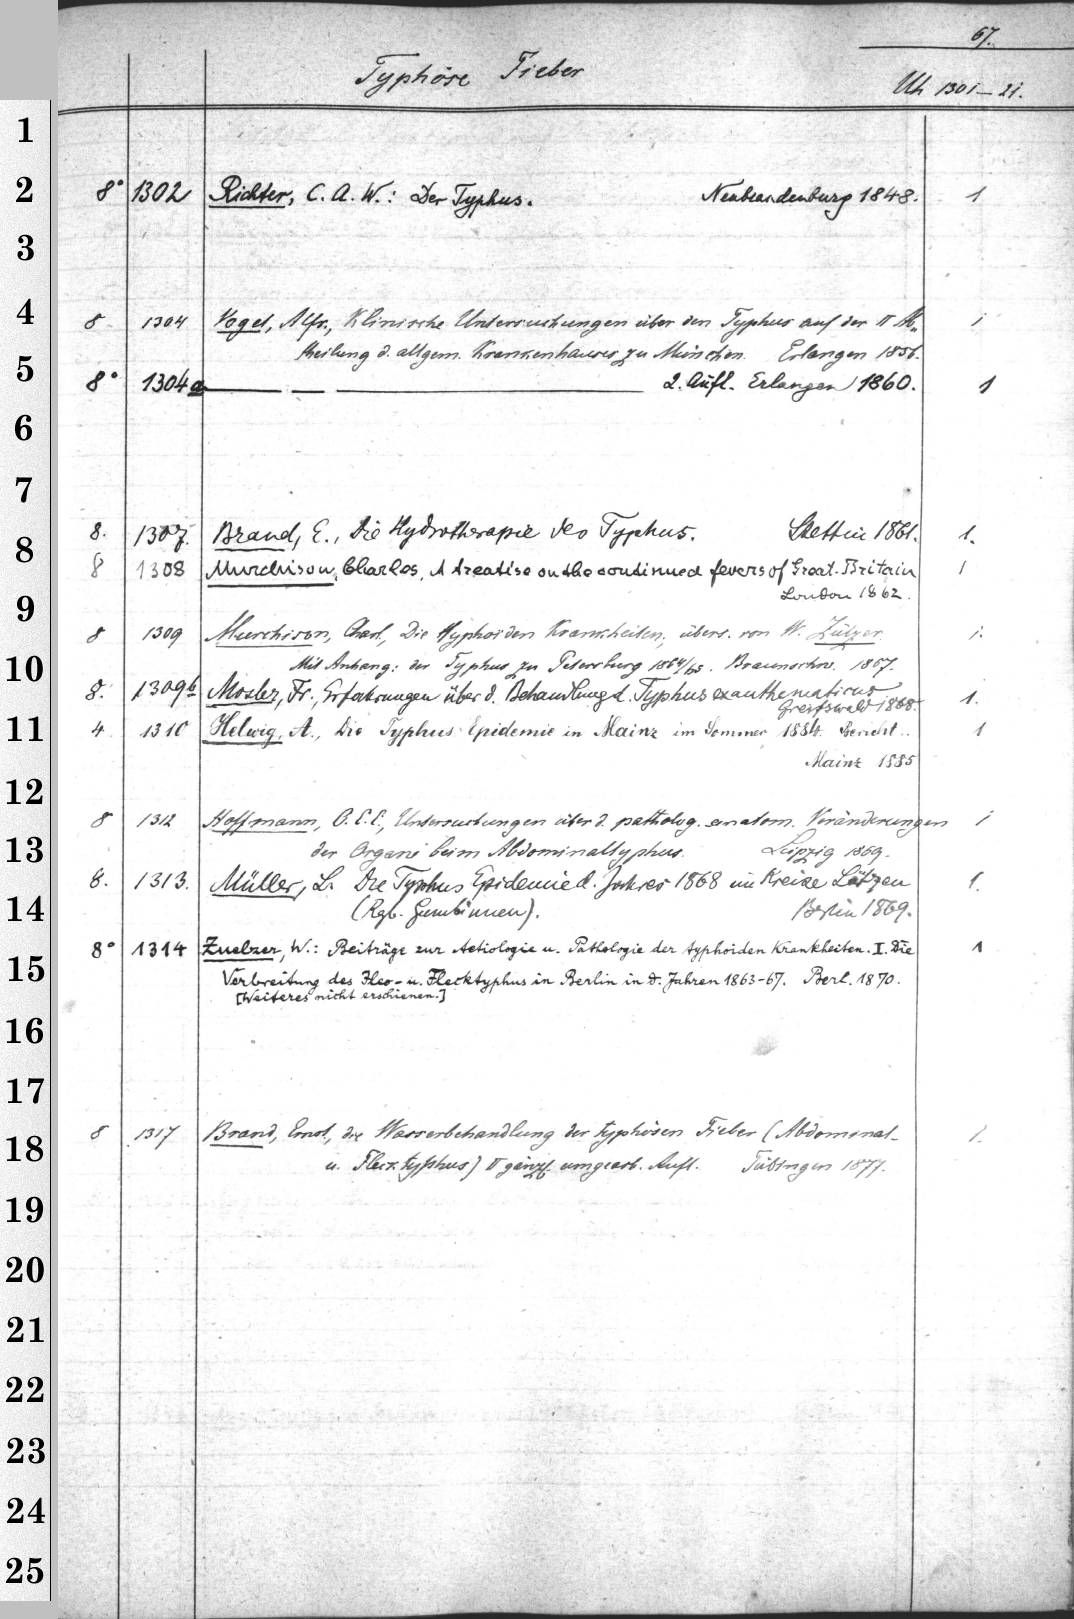 67.
Typhöse Fieber
Uh 1301-21.
1
2
8° 1302 Richter, C. A. W.: Der Typhus. Neubrandenburg 1848. 1
3
4
8 1304 Vogel, Alfr., Klinische Untersuchungen über den Typhus auf der II Ab-
theilung d. allgem. Krankenhauses zu München. Erlangen 1856.
5
8° 1304a 2. Aufl. Erlangen 1860. 1
6
7
8. 1307. Brand, E., Die Hydrotherapie des Typhus. Stettin 1861. 1.
8
8 1308 Murchison, Charles, A treatise on the continued fevers of Great-Britain 1
London 1862.
9
8 1309 Murchison, Charl., Die typhoiden Krankheiten, übers. von W. Zülzer. 1.
10
Mit Anhang: der Typhus zu Petersburg 1864/65. Braunschw. 1867.
8. 1309b Mosler, Fr., Erfahrungen über d. Behandlung d. Typhus exanthematicus 1.
Greifswald 1868.
11
4 1310 Helwig, A., Die Typhus-Epidemie in Mainz im Sommer 1884. Bericht.. 1
Mainz 1885
12
8 1312 Hoffmann, C. E. E., Untersuchungen über d. patholog. anatom. Veränderungen 1
13
der Organe beim Abdominaltyphus. Leipzig 1869.
8. 1313. Müller, L. Die Typhus Epidemie d. Jahres 1868 im Kreise Lötzen 1.
14
(Rgb. Gumbinnen). Berlin 1869.
8° 1314 Zuelzer, W.: Beiträge zur Aetiologie u. Pathologie der typhoiden Krankheiten. I. Die 1
15
Verbreitung des Ileo- u. Flecktyphus in Berlin in d. Jahren 1863-67. Berl. 1870.
[Weiteres nicht erschienen.]
16
17
8 1317 Brand, Ernst, die Wasserbehandlung der typhösen Fieber (Abdominal- 1.
18
u. Flecktyphus) II gänzl. umgearb. Aufl. Tübingen 1877.
19
20
21
22
23
24
25